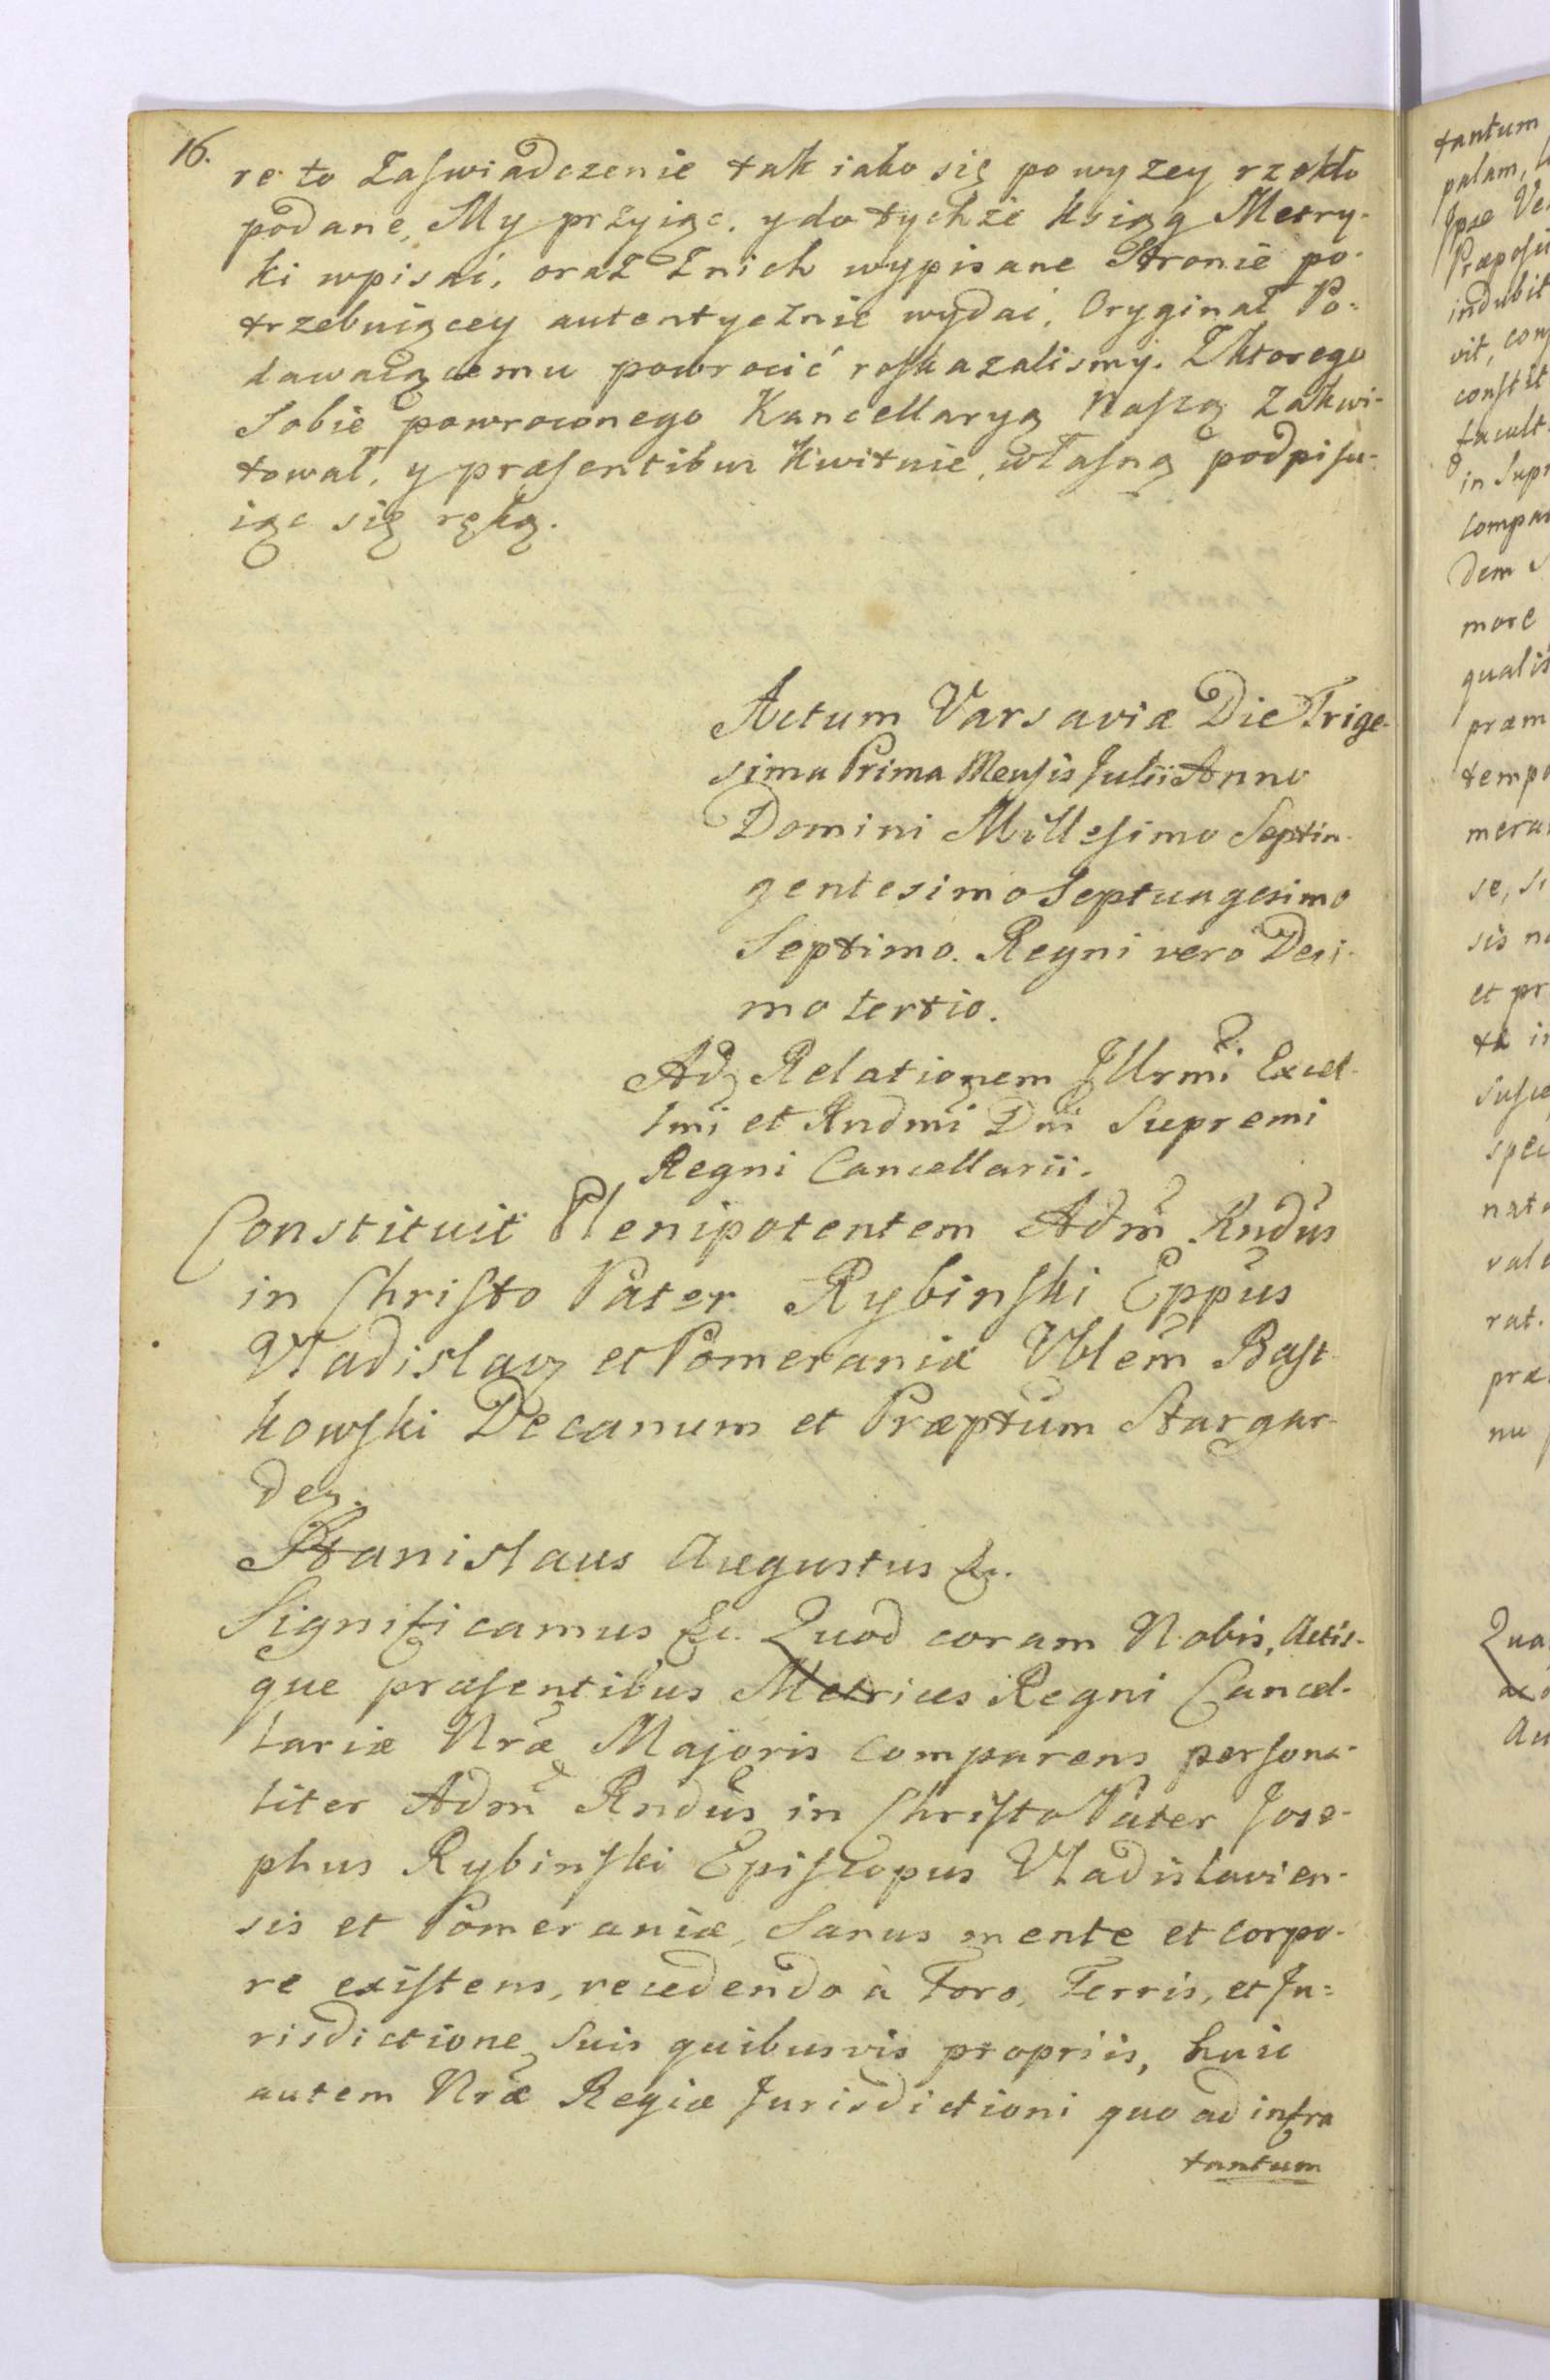 16.
re to Zaswiadczenie tak iako się powyzey rzekło
podane, My przyiąc, y do tychże Ksiąg Metry-
ki wpisać, oraz Znich wypisane Stronie po-
trzebuiącey autentycznie wydać, Oryginał Po-
dawaiącemu powrocić roskazalismy. Zktorego
Sobie powroconego Kancellaryą Naszą Zakwi-
tował, y præsentibus Kwituie, własną podpisu-
iąc się ręką.
Actum Varsaviæ Die Trige-
sima Prima Mensis Julii Anno
Domini Millesimo Septin-
gentesimo Septuagesimo
Septimo. Regni vero Deci-
mo tertio.
Ad Relationem Illrmi Excel-
lmi et Rndmi Dni Supremi
Regni Cancellarii.
Constituit Plenipotentem Adm Rndus
in Christo Pater Rybinski Eppus
Vladislav et Pomeraniæ Vblem Bast-
kowski Decanum et Præptum Stargar-
den.
Stanislaus Augustus &c.
Significamus &c. Quod coram Nobis, Actis-
que præsentibus Metrices Regni Cancel-
lariæ Nræ Majoris comparens persona-
liter Adm Rndus in Christo Pater Jose-
phus Rybinski Episcopus Vladislavien-
sis et Pomeraniæ, Sanus mente et corpo-
re existens, recedendo à Foro, Terris, et Ju-
risdictione Suis quibusvis propriis, huic
autem Nræ Regiæ Jurisdictioni quo ad infra
tantum
tantum
palam,
Ipse
indubit
vit,
constit
facult
in Supr
compar
dem
more
qualis
præm
tempo
mera
se,
sis
et pr
ta
rat.
præ
nu
Qua